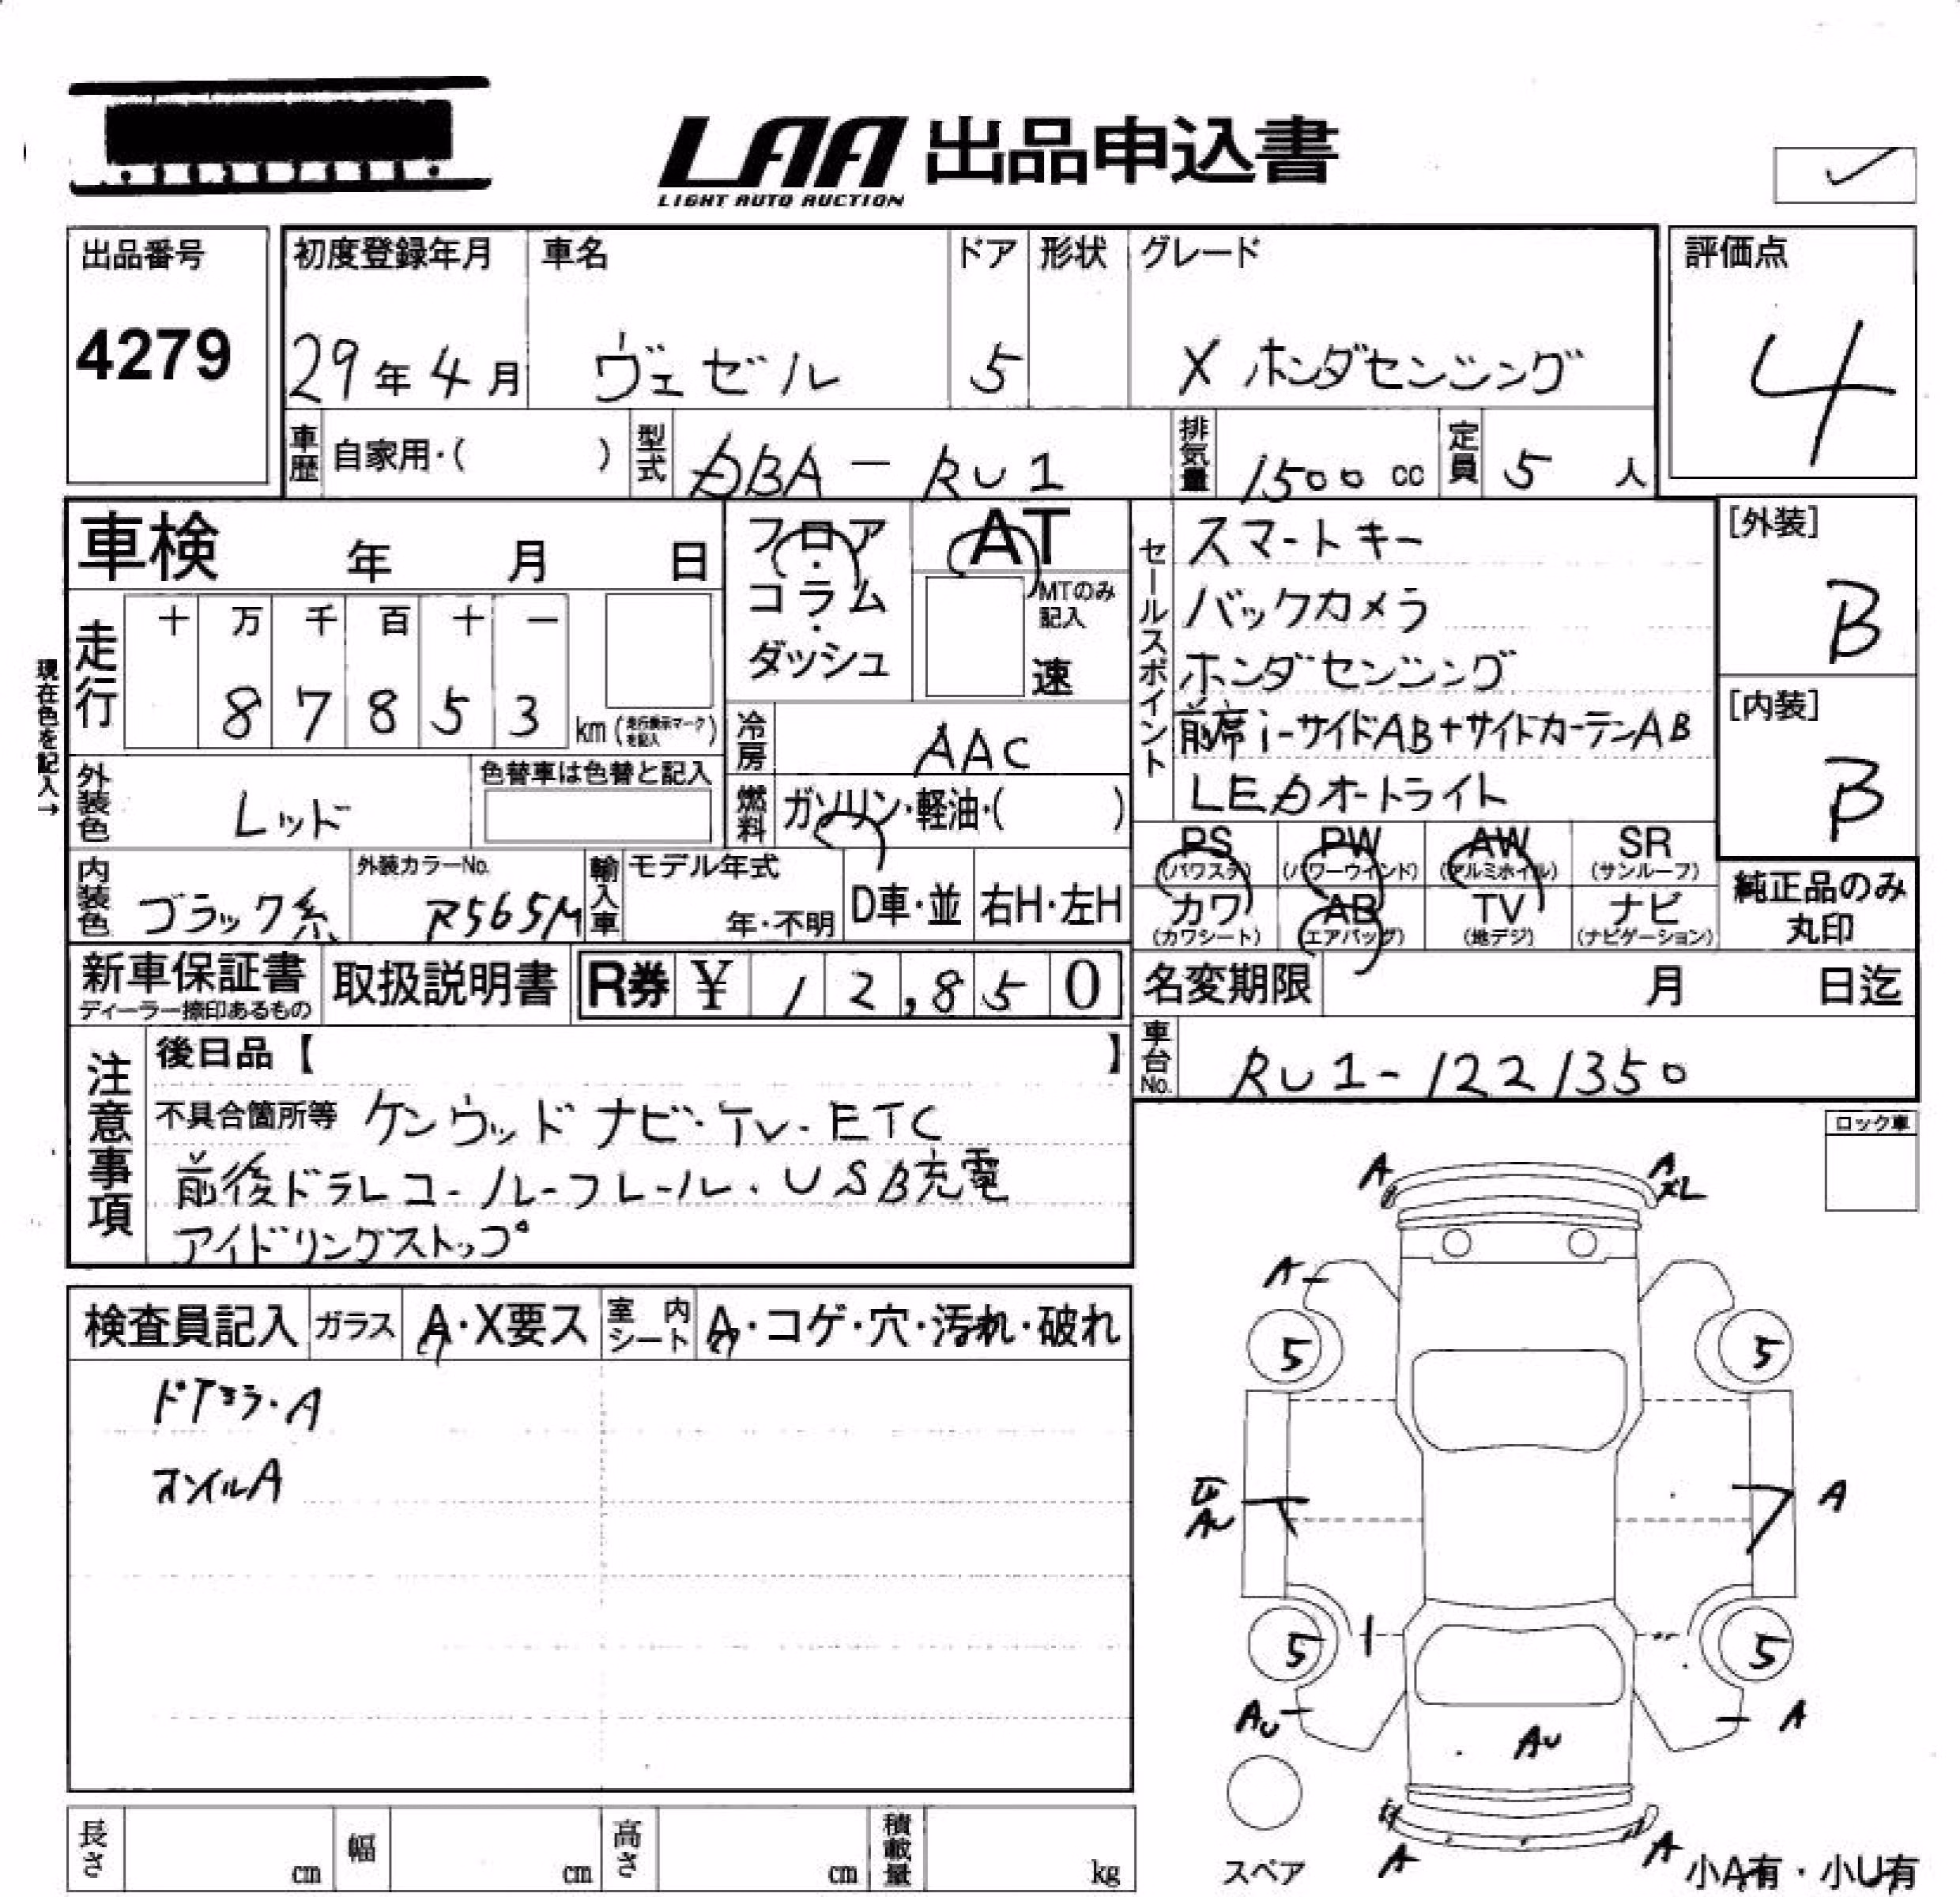 LAA 出品申込書
LIGHT AUTO AUCTION
出品番号
4279
初度登録年月
29年4月
車名
ヴェゼル
ドア
5
形状
グレード
X ホンダセンシング
評価点
4
車歴 自家用・( )
型式 DBA-RU1
排気量 1500 cc
定員 5 人
車検 年 月 日
フロア・コラム・ダッシュ
AT
MTのみ記入
速
セールスポイント
スマートキー
バックカメラ
ホンダセンシング
前席i-サイドAB+サイドカーテンAB
LEDオートライト
[外装]
B
[内装]
B
現在色を記入→
走行
十 万 千 百 十 一
8 7 8 5 3 km (走行表示マークを記入)
冷房 AAC
外装色 レッド
色替車は色替と記入
燃料 ガソリン・軽油・( )
PS (パワステ)
PW (パワーウインド)
AW (アルミホイル)
SR (サンルーフ)
カワ (カワシート)
AB (エアバッグ)
TV (地デジ)
ナビ (ナビゲーション)
純正品のみ丸印
内装色 ブラック系
外装カラーNo. R565M
輸入車 モデル年式
年・不明
D車・並
右H・左H
新車保証書
ディーラー捺印あるもの
取扱説明書
R券 ¥ 12,850
名変期限 月 日迄
車台No. RU1-1221350
注意事項
後日品【 】
不具合箇所等 ケンウッド ナビ・TV・ETC
前後ドラレコ・ルーフレール・USB充電
アイドリングストップ
ロック車
検査員記入
ガラス A・X要ス
室内シート A・コゲ・穴・汚れ・破れ
ドアミラ・A
ホイルA
A
A
XL
A
5
5
AU
A
5
5
AU
A
AU
A
A
スペア
小A有・小U有
長さ cm
幅 cm
高さ cm
積載量 kg